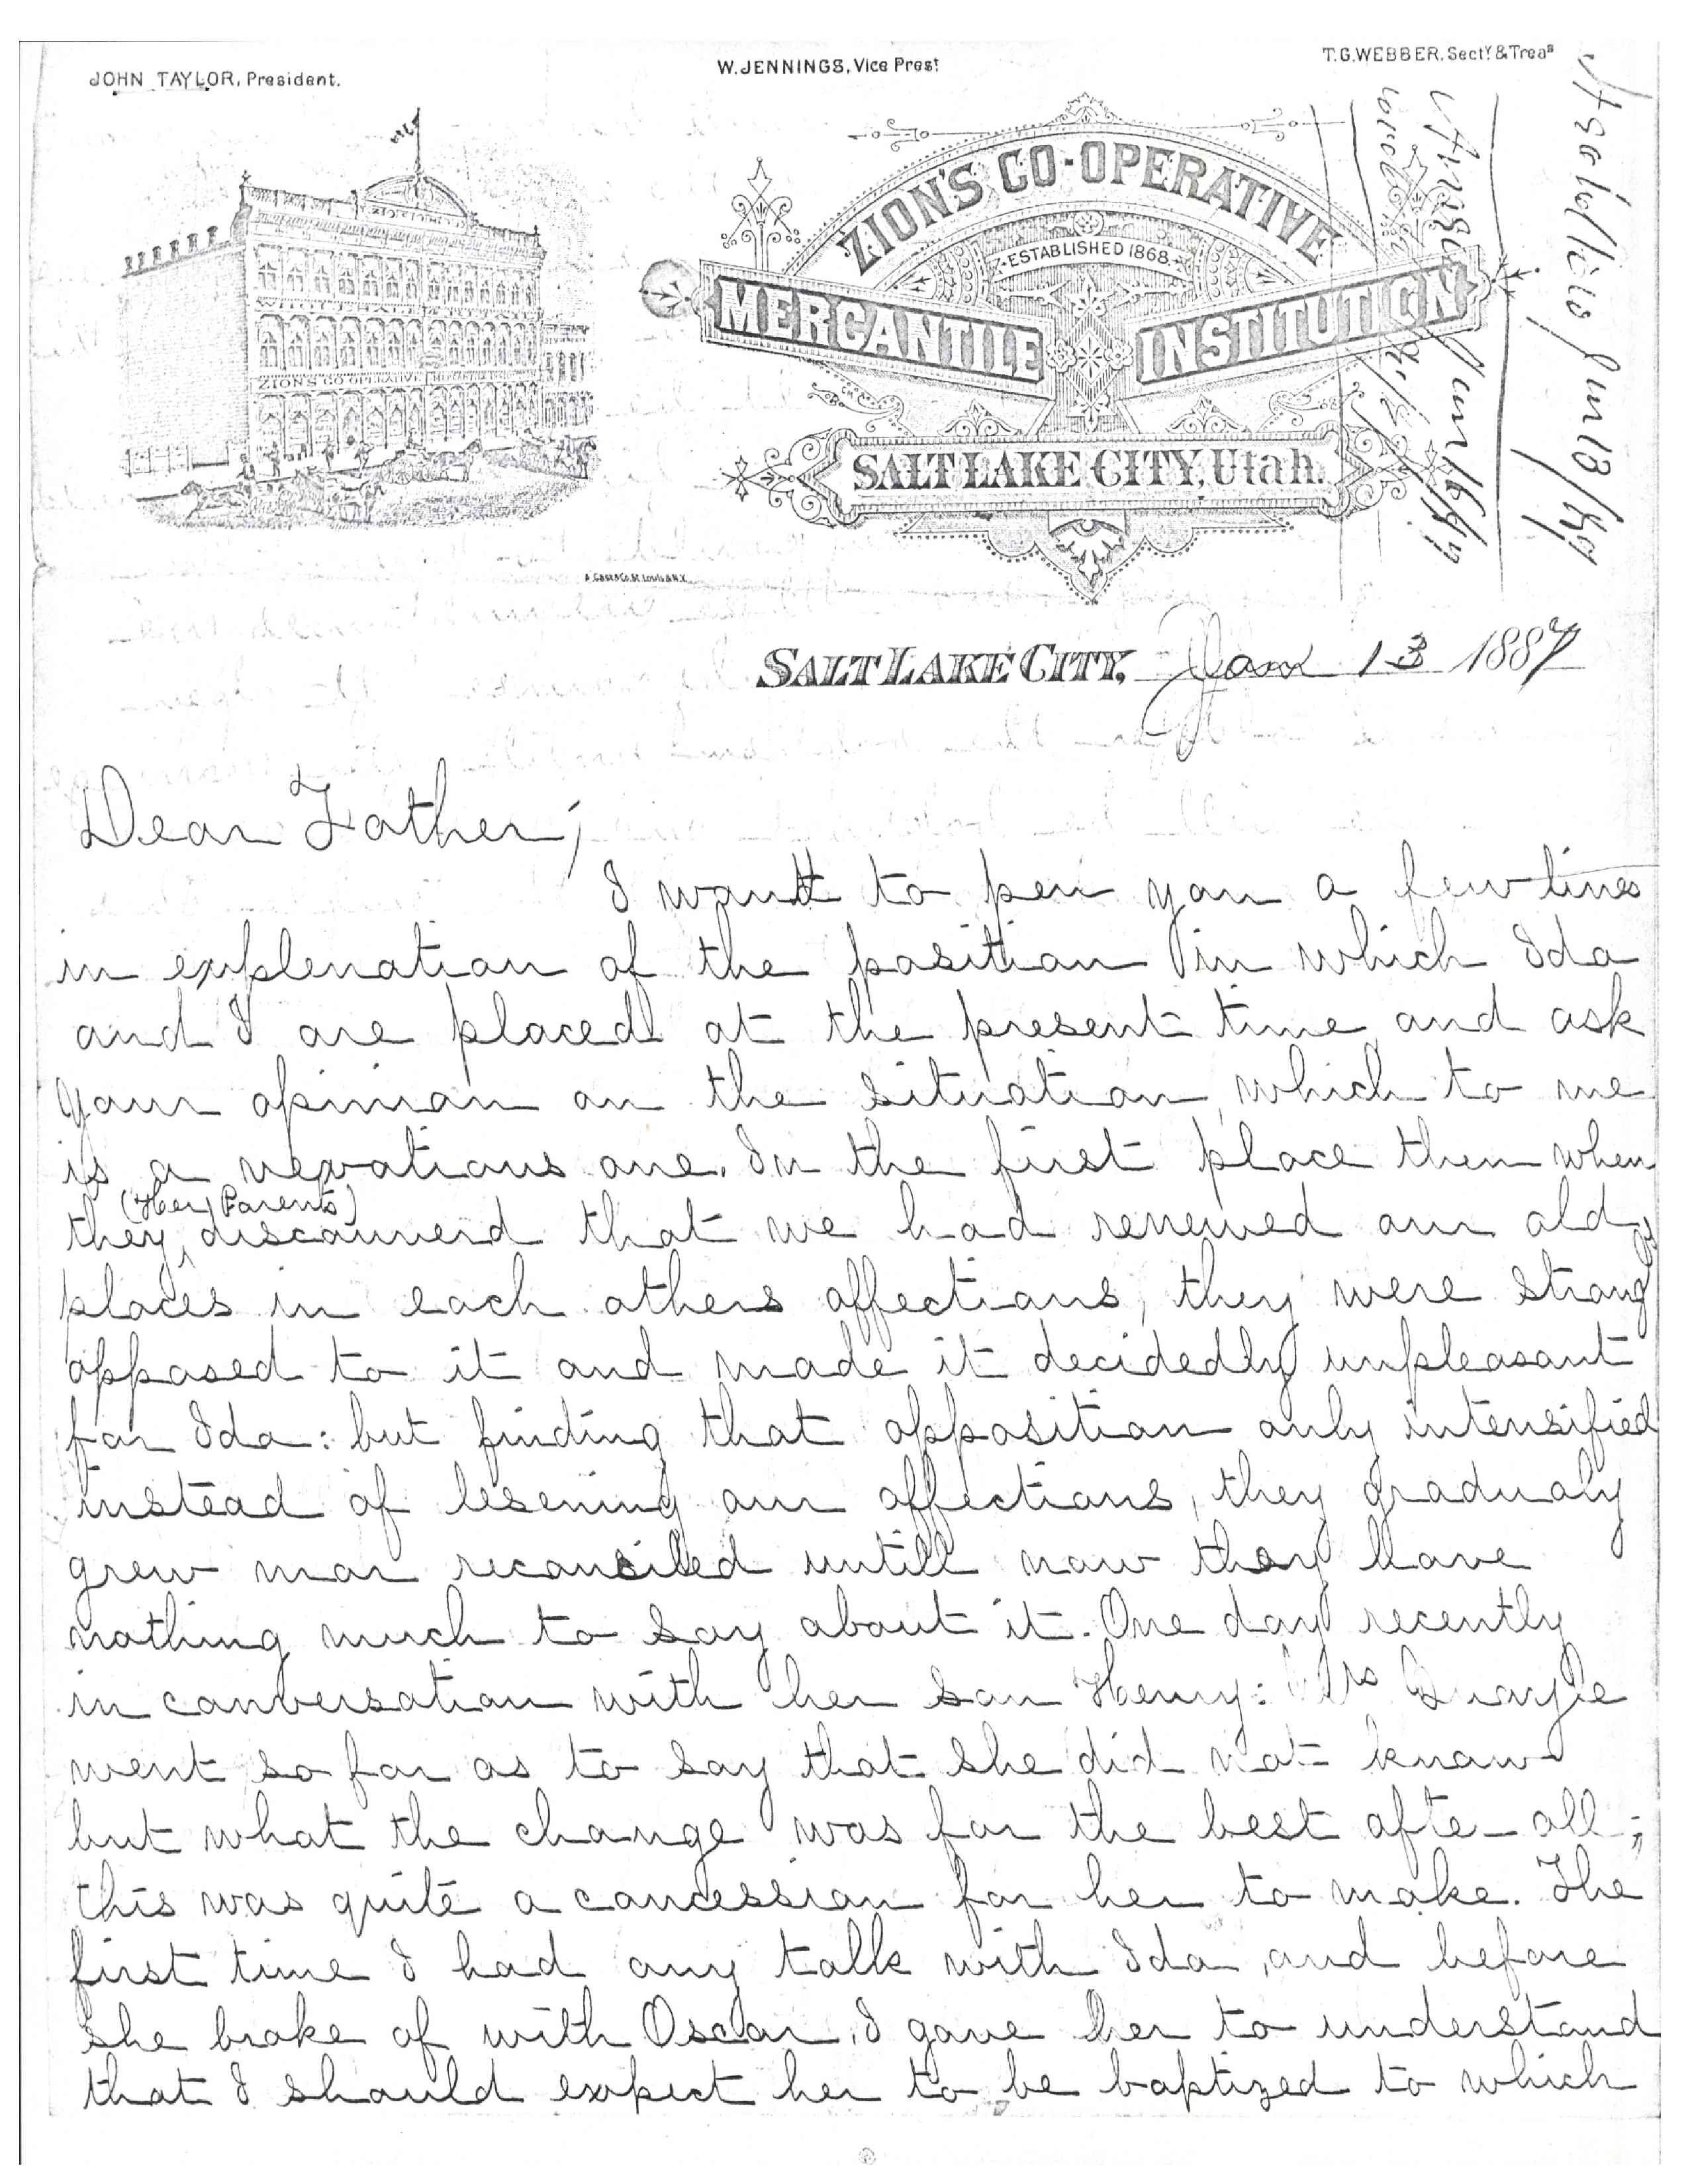 JOHN TAYLOR, President.
W. JENNINGS, Vice Prest
T.G. WEBBER, Secty & Treas
ZION'S CO-OPERATIVE
ESTABLISHED 1868.
MERCANTILE INSTITUTION
SALT LAKE CITY, Utah.
ZION'S CO OPERATIVE
A. Gast & Co. St. Louis & N.Y.
Jan 13/87
Jan 16/87
SALT LAKE CITY, Jan 13 1887
Dear Father;
I want to pen you a few lines
in explenation of the position in which Ida
and I are placed at the present time and ask
your opinion on the situation, which to me
is a vexatious one. In the first place then when
(Her Parents)
they discouverd that we had renewed our old
places in each others affections, they were strongly
opposed to it and made it decidedly unpleasant
for Ida: but finding that opposition only intensified
instead of lesening our affections, they gradualy
grew mor reconsiled untill now they have
nothing much to say about it. One day recently
in conversation with her son Henry: Mrs Quayle
went so far as to say that she did not know
but what the change was for the best afte- all;
this was quite a concession for her to make. The
first time I had any talk with Ida, and before
she broke of with Oscar, I gave her to understand
that I should expect her to be baptized to which